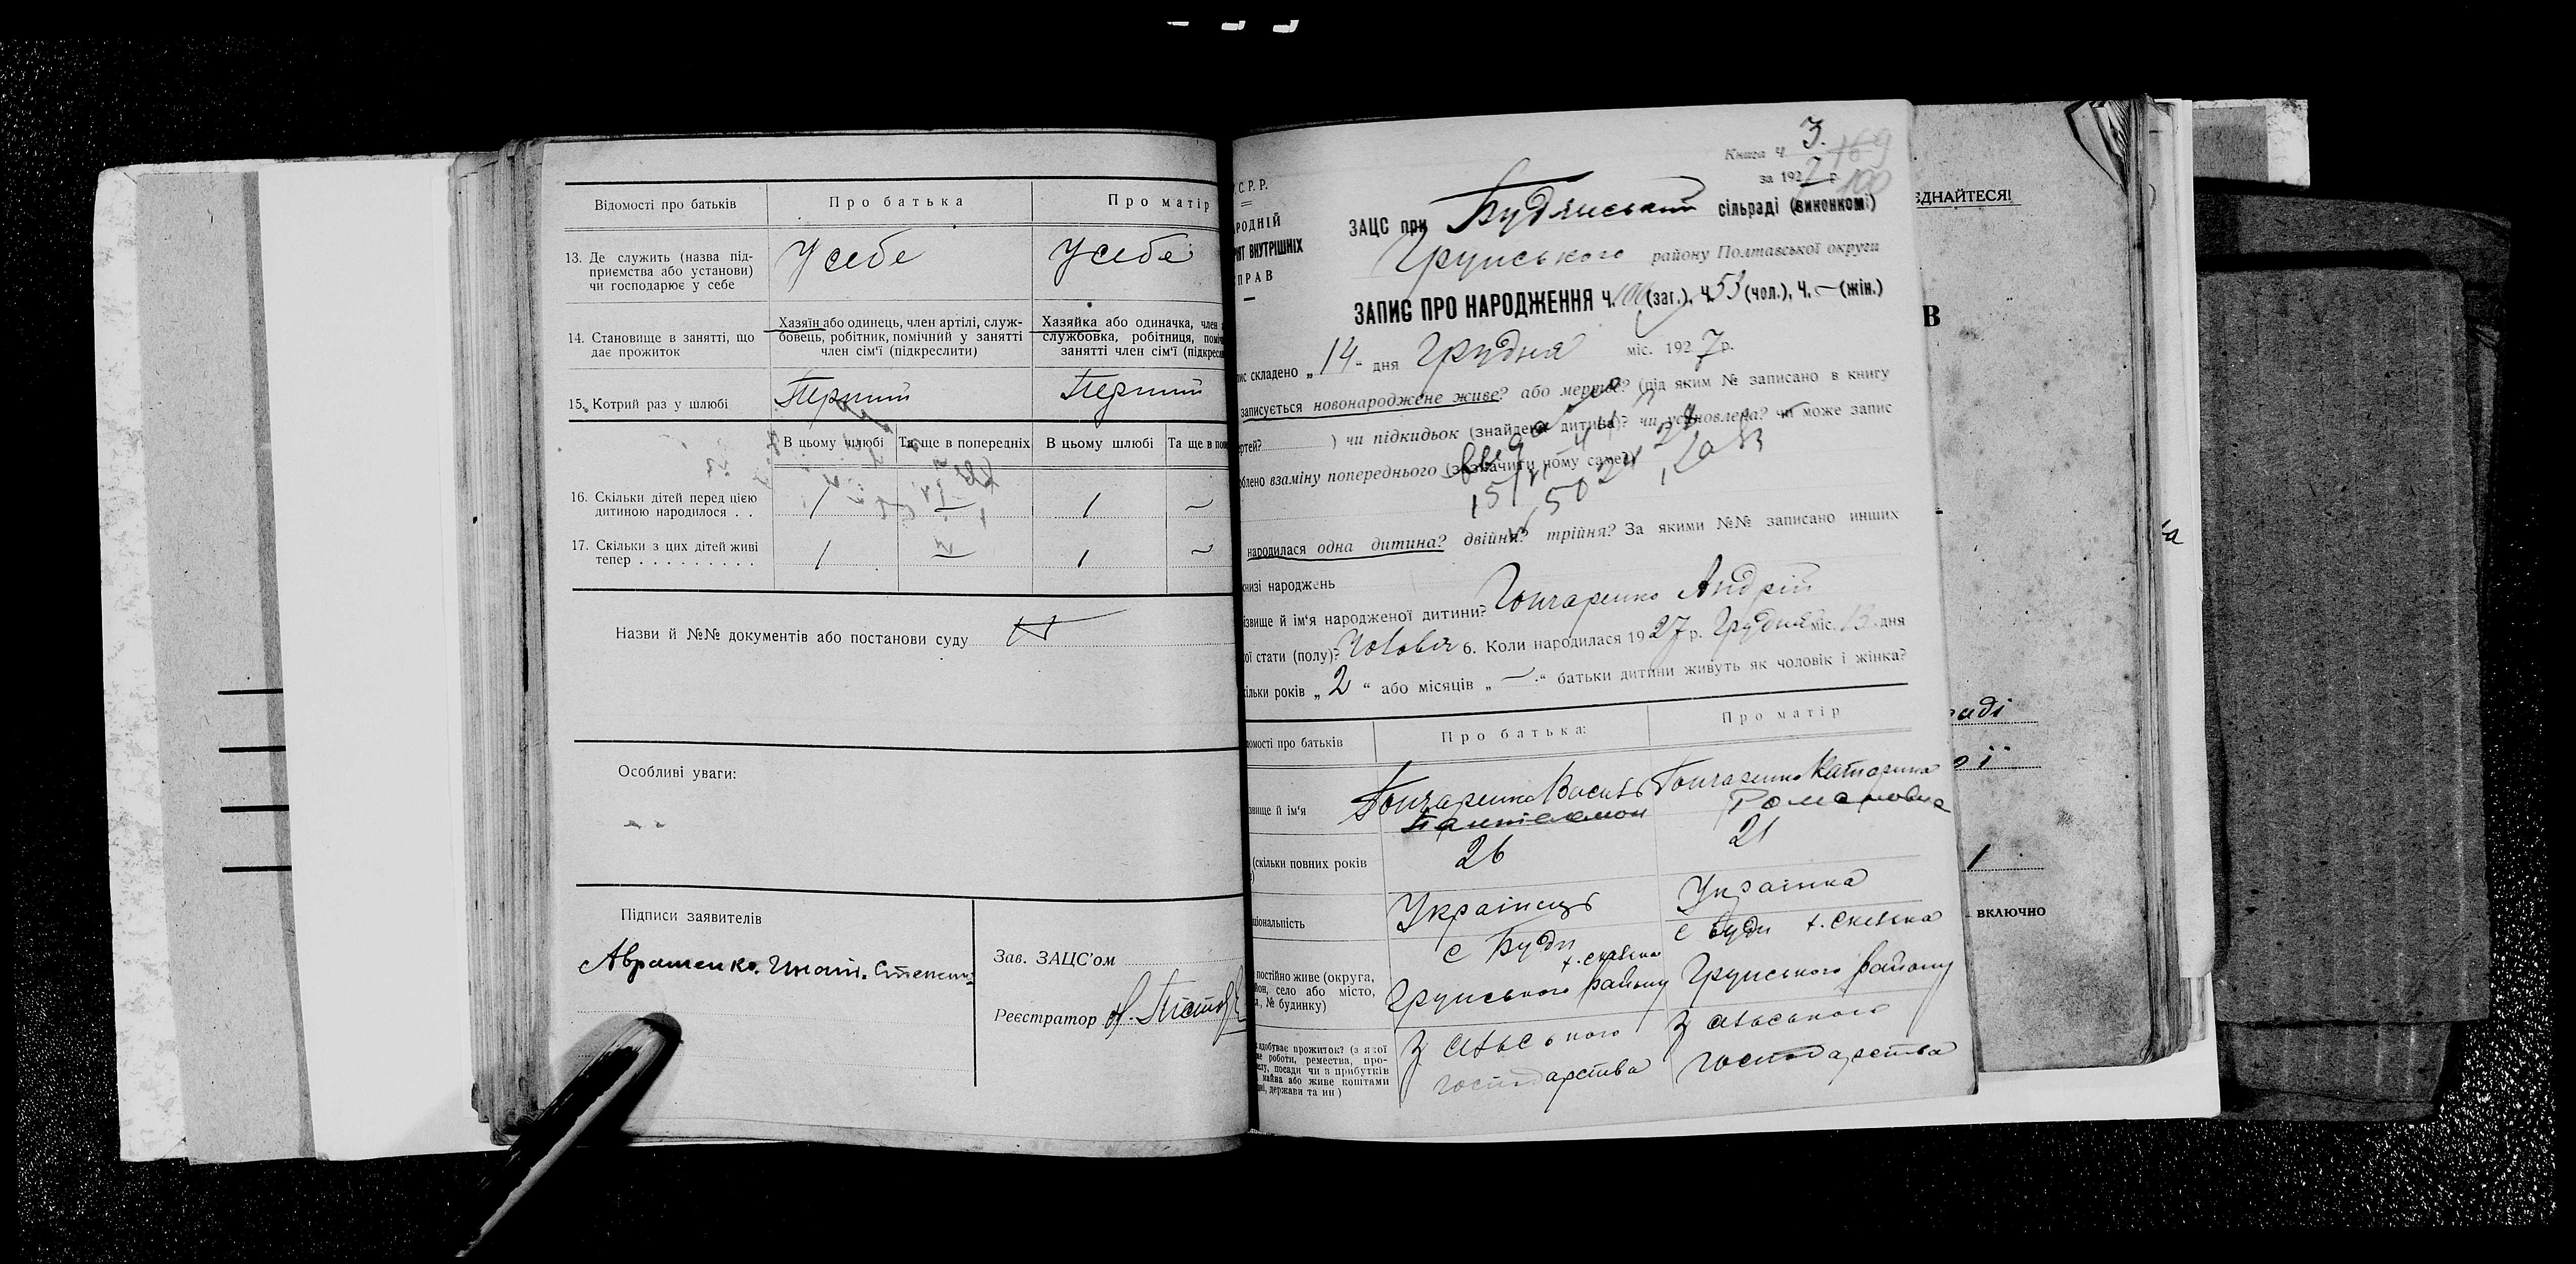 Відомості про батьків
Про батька
Про матір
13. Де служить (назва під-
приємства або установи)
чи господарює у себе
У себе
У себе
14. Становище в занятті, що
дає прожиток
Хазяїн або одинець, член артілі, служ-
бовець, робітник, помічний у занятті
член сім'ї (підкреслити)
Хазяйка або одиначка, член
службовка, робітниця, поміч
занятті член сім'ї (підкресл
15. Котрий раз у шлюбі
Перший
Перший
В цьому шлюбі
Та ще в попередніх
В цьому шлюбі
Та ще в поп
16. Скільки дітей перед цією
дитиною народилося . .
1
—
1
~
17. Скільки з цих дітей живі
тепер . . . . . . . . .
1
—
1
~
Назви й №№ документів або постанови суду
Особливі уваги:
Підписи заявителів
Зав. ЗАЦС'ом
Реєстратор
Книга ч. 3.
169
за 1927 р.
100
.С.Р.Р.
РОДНІЙ
РІЯТ ВНУТРІШНІХ
ПРАВ
ЗАЦС при Будянський сільраді (виконком)
Грунського району Полтавської округи
ЗАПИС ПРО НАРОДЖЕННЯ Ч. 100 (заг.), Ч. 53 (чол.), Ч. — (жін.)
пис складено „14" дня Грудня міс. 1927 р.
записується новонароджене живе? або мертве? (під яким № записано в книгу
ертей? ) чи підкидьок (знайдена дитина)? чи установлена? чи може запис
облено взаміну попереднього (зазначити чому саме?)
народилася одна дитина? двійня? трійня? За якими №№ записано инших
книзі народжень
ізвище й ім'я народженої дитини? Гончаренко Андрій
ої стати (полу)? Чоловіч 6. Коли народилася 1927 р. Грудня міс. 13 дня
ільки років „2" або місяців „—" батьки дитини живуть як чоловік і жінка?
домості про батьків
Про батька:
Про матір
звище й ім'я
Гончаренко Василь
Пантелемон
Гончаренко Катерина
Романовна
(скільки повних років
26
21
ціональність
Українець
Українка
постійно живе (округа,
йон, село або місто,
, № будинку)
с Буди
Грунського району
с Буди
Грунського району
здобуває прожиток? (з якої
ме роботи, ремества, про-
слу, посади чи з прибутків
майна або живе коштами
дні, держави та ин)
З сільського
господарства
З сільського
господарства
ЄДНАЙТЕСЯ!
В
раді
ої
1
включно